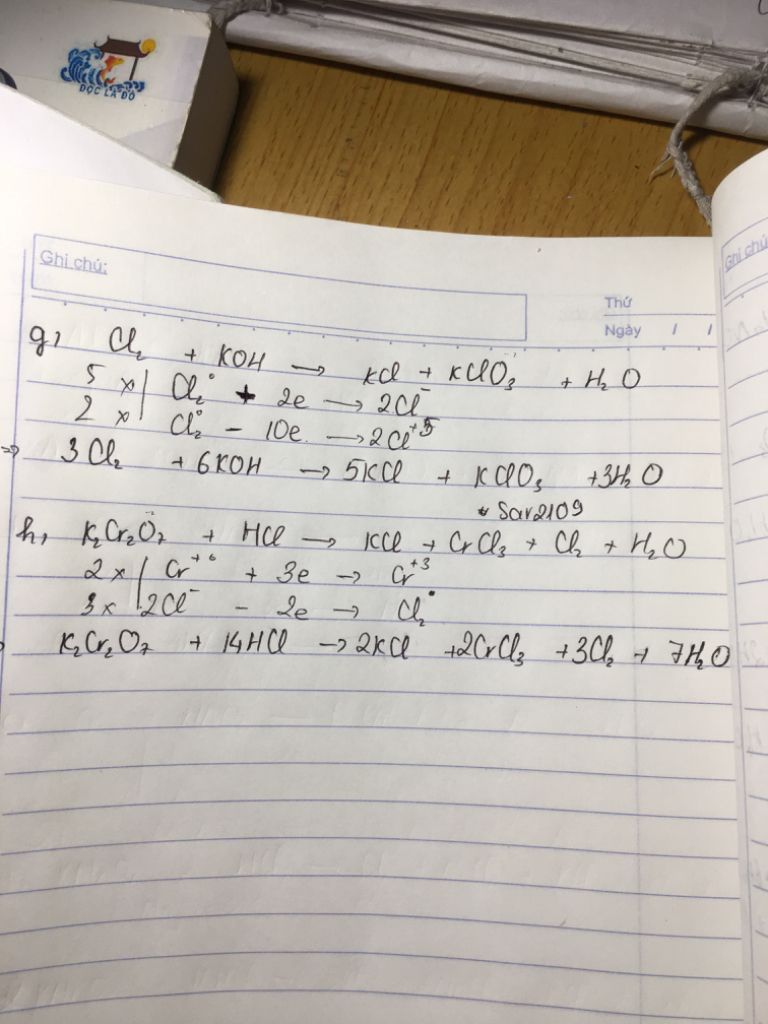 ĐỘC LẠ ĐỒ
Ghi chú:
Thứ
Ngày / /
Ghi chú
g, Cl₂ + KOH → KCl + KClO₃ + H₂O
5 x | Cl₂⁰ + 2e → 2Cl⁻
2 x | Cl₂⁰ - 10e → 2Cl⁺⁵
⇒ 3Cl₂ + 6KOH → 5KCl + KClO₃ + 3H₂O
* Sar2109
h, K₂Cr₂O₇ + HCl → KCl + CrCl₃ + Cl₂ + H₂O
2 x | Cr⁺⁶ + 3e → Cr⁺³
3 x | 2Cl⁻ - 2e → Cl₂⁰
K₂Cr₂O₇ + 14HCl → 2KCl + 2CrCl₃ + 3Cl₂ + 7H₂O